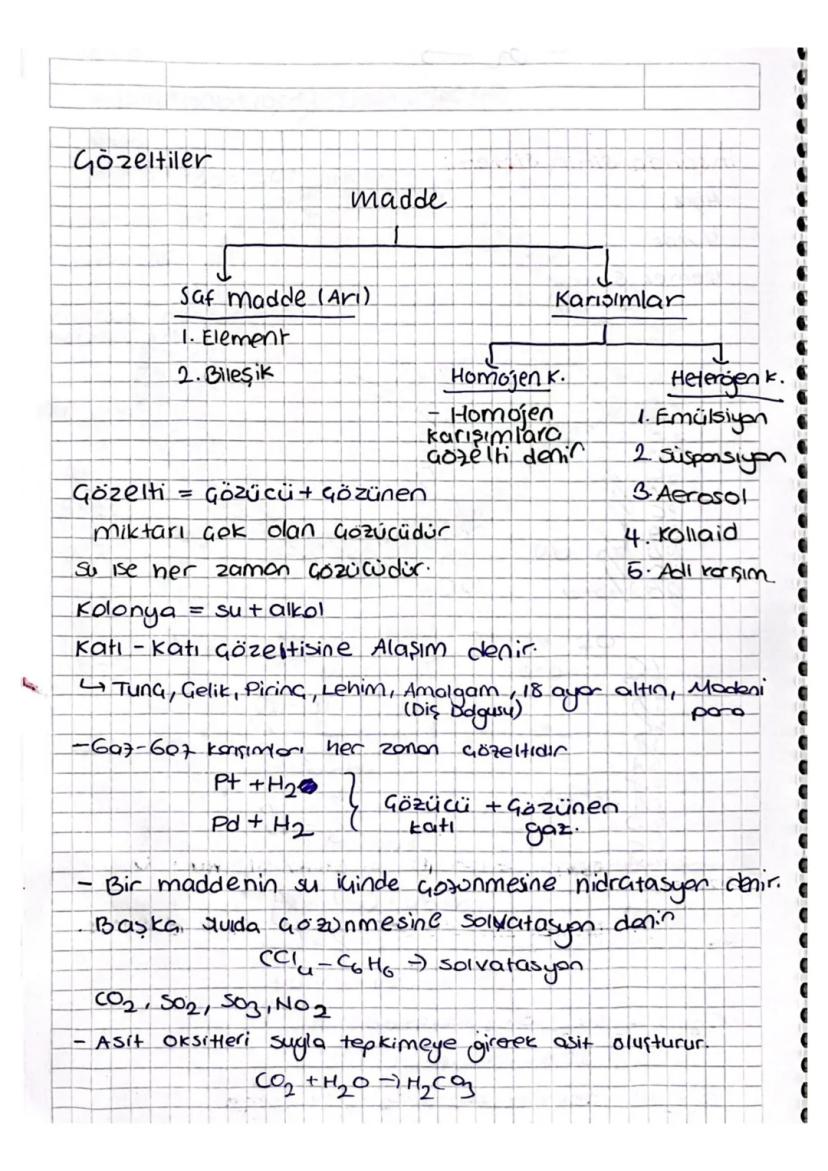 Çözeltiler
madde
Saf madde (Arı)
Karışımlar
1. Element
2. Bileşik
Homojen k.
Heterojen k.
- Homojen
karışımlara
çözelti denir
1. Emülsiyon
2. Süspansiyon
3. Aerosol
4. Kolloid
5. Adi karışım
Çözelti = Çözücü + Çözünen
miktarı çok olan çözücüdür
Su ise her zaman çözücüdür.
Kolonya = su + alkol
Katı - Katı çözeltisine Alaşım denir.
↳ Tunç, Çelik, Pirinç, Lehim, Amalgam, 18 ayar altın, Madeni
(Diş Dolgusu) para
- Gaz-Gaz karışımları her zaman çözeltidir
Pt + H₂
Pd + H₂
Çözücü + Çözünen
katı gaz.
- Bir maddenin su içinde çözünmesine hidratasyon denir.
Başka sıvıda çözünmesine solvatasyon denir
CCl₄ - C₆H₆ → solvatasyon
CO₂, SO₂, SO₃, NO₂
- Asit oksitleri suyla tepkimeye girerek asit oluşturur.
CO₂ + H₂O → H₂CO₃